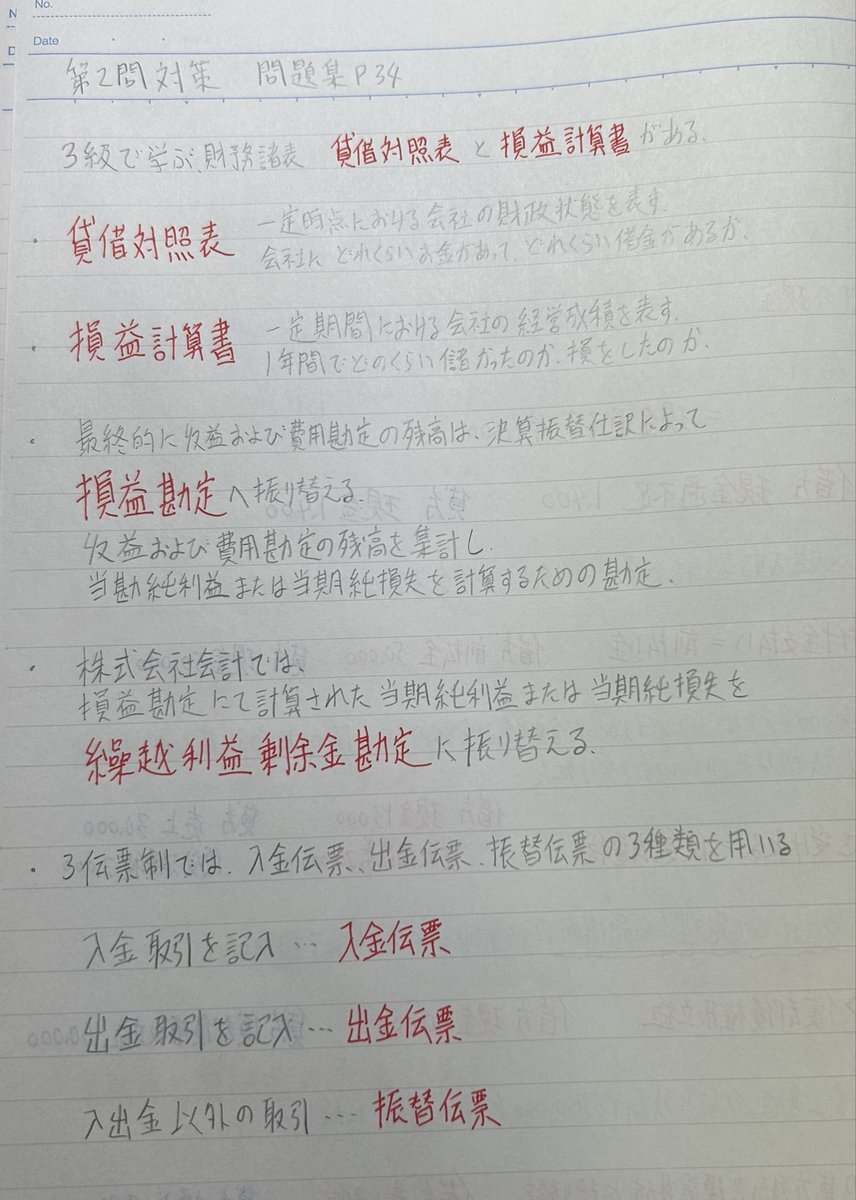 No.
Date
第2問対策 問題集P34
3級で学ぶ、財務諸表 貸借対照表と損益計算書がある。
・貸借対照表 一定時点における会社の財政状態を表す。
会社にどれくらいお金があって、どれくらい借金があるか。
・損益計算書 一定期間における会社の経営成績を表す。
1年間でどのくらい儲かったのか、損をしたのか。
・最終的に収益および費用勘定の残高は、決算振替仕訳によって
損益勘定へ振り替える。
収益および費用勘定の残高を集計し、
当勘純利益または当期純損失を計算するための勘定。
・株式会社会計では、
損益勘定にて計算された当期純利益または当期純損失を
繰越利益剰余金勘定に振り替える。
・3伝票制では、入金伝票、出金伝票、振替伝票の3種類を用いる
入金取引を記入…入金伝票
出金取引を記入…出金伝票
入出金以外の取引…振替伝票